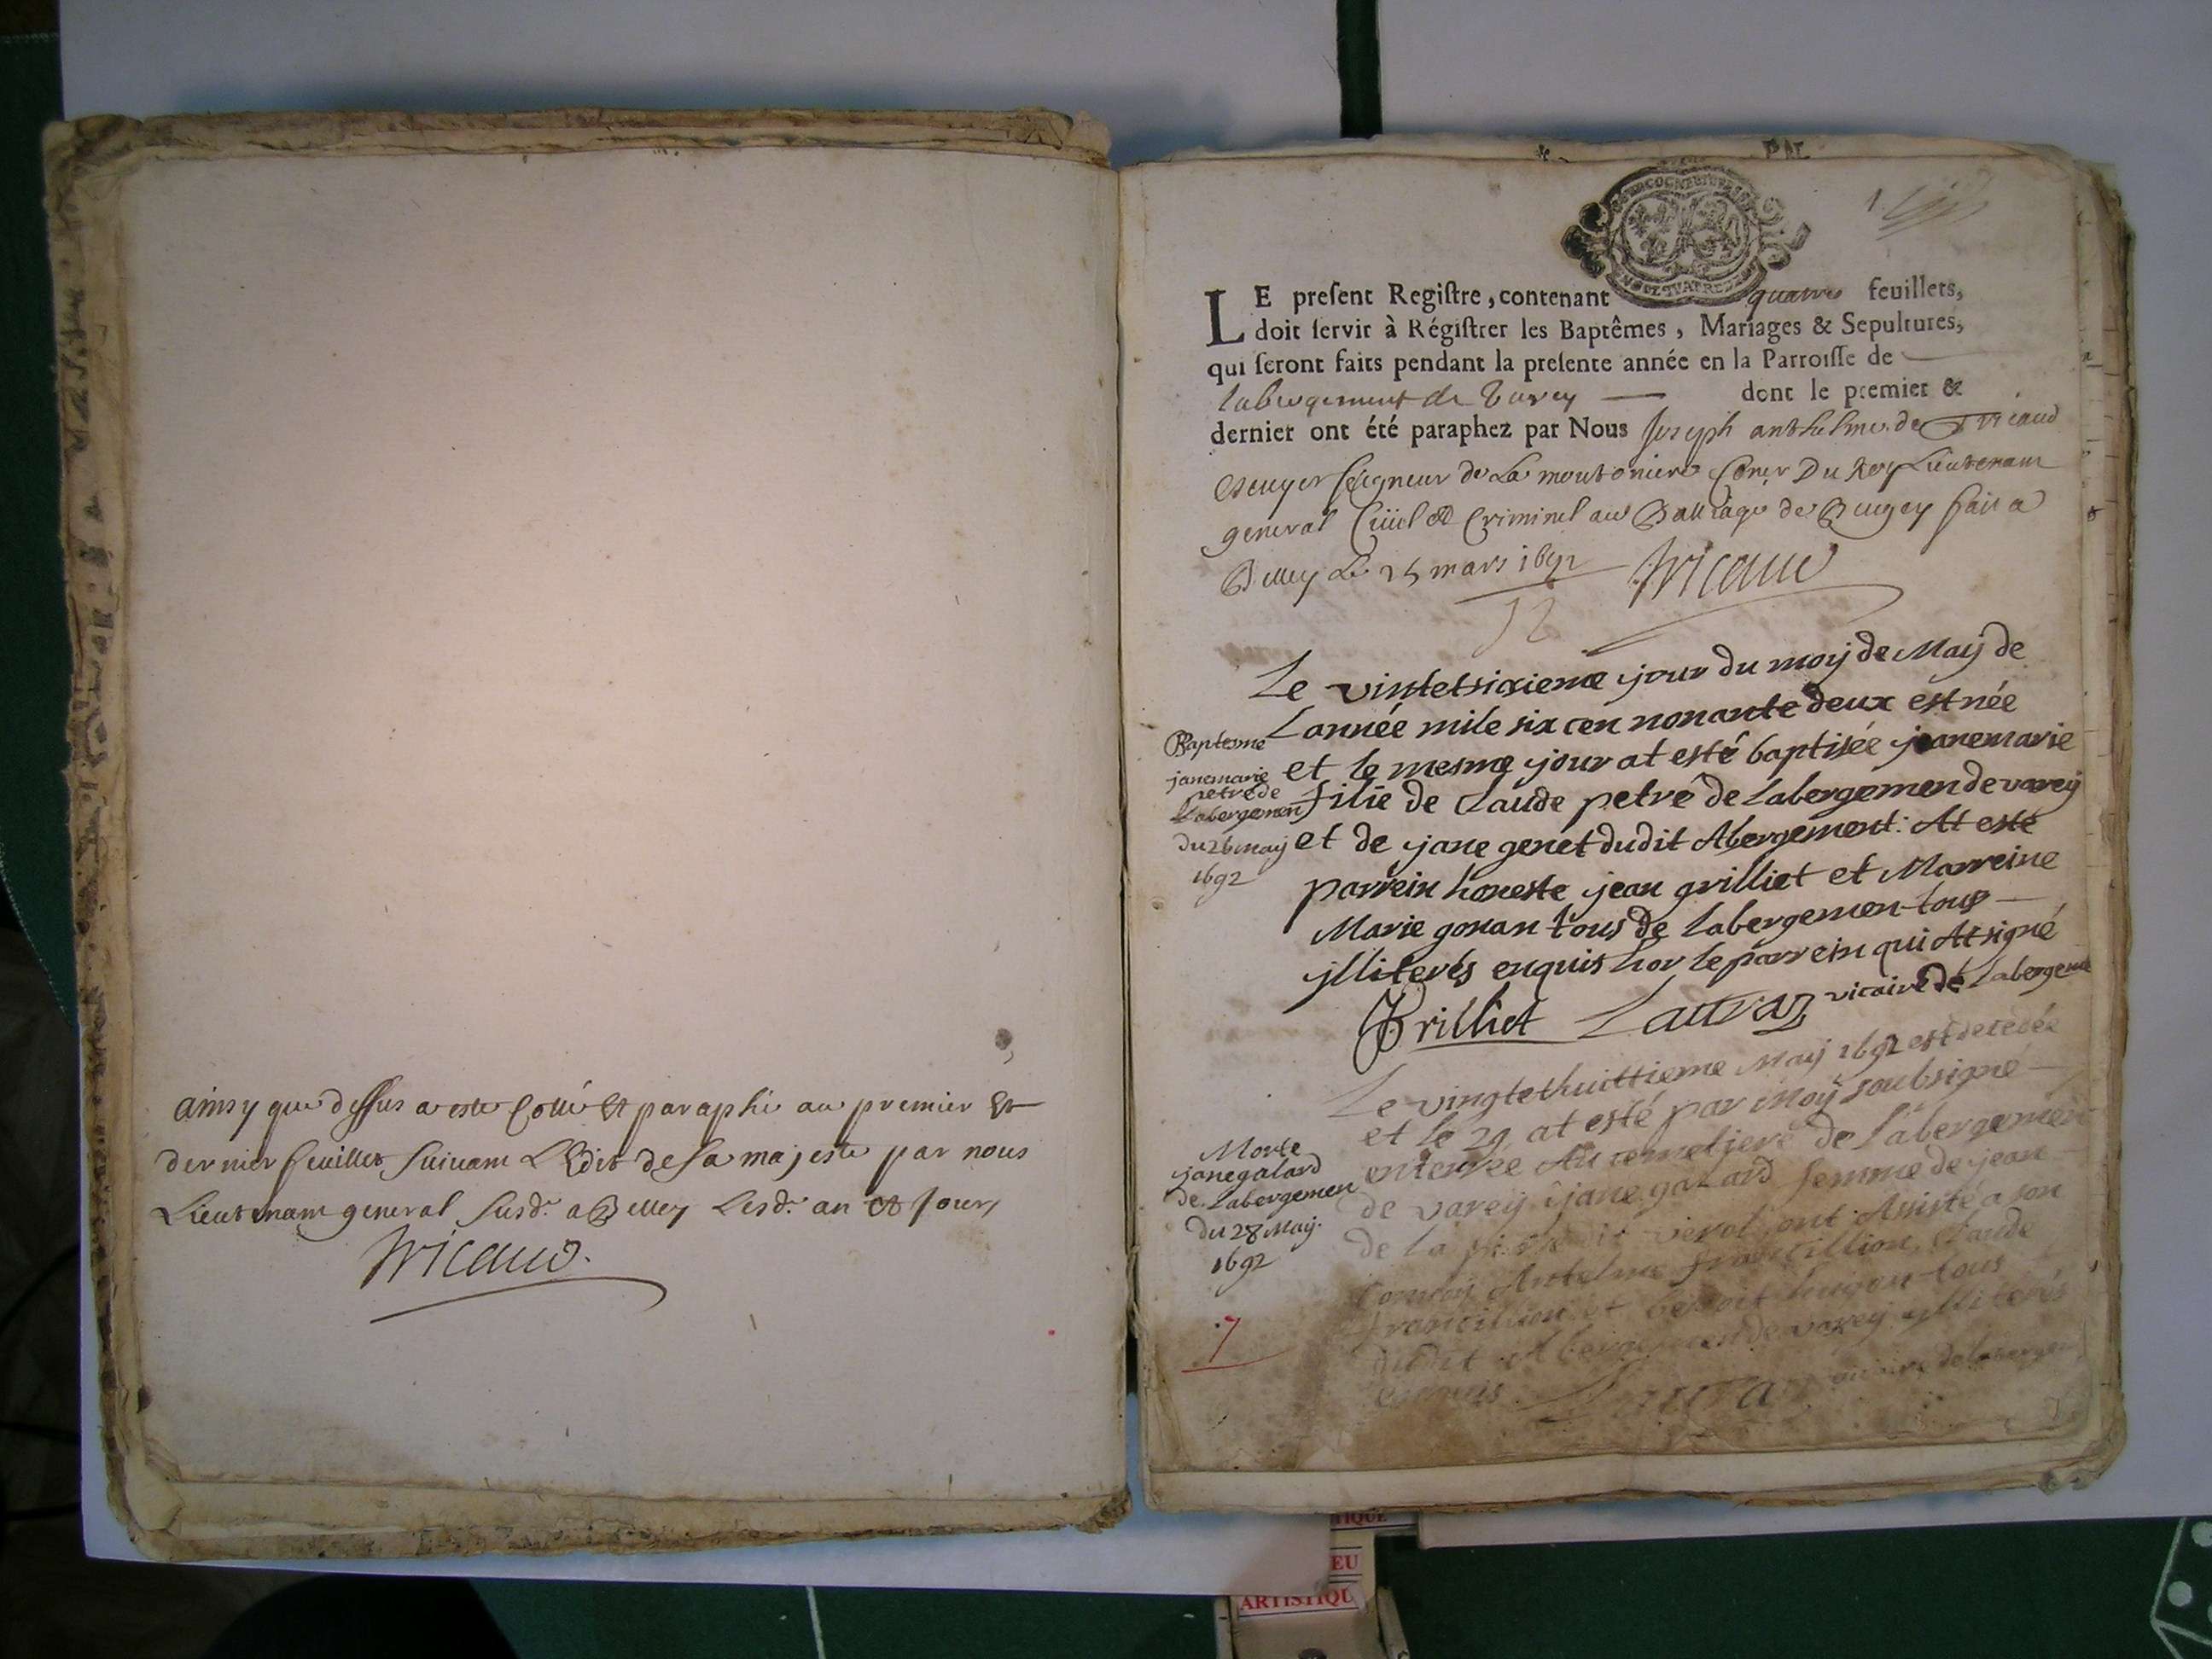 ainsy que dessus a este Cotté Et paraphé au premier Et
dernier feuillet Suivant LEdit de Sa majesté par nous
Lieutenant general Susd. a Belley Lesd. an et Jour,
Tricaud.
LE present Registre, contenant quatre feuillets,
doit servir à Régistrer les Baptêmes, Mariages & Sepultures,
qui seront faits pendant la presente année en la Parroisse de
labergement de Varey dont le premier &
dernier ont été paraphez par Nous Joseph anthelme de Tricaud
escuyer seigneur de La moutoniere Coner Du Roy Lieutenant
general Civil et Criminel au Balliage de Bugey fait a
Belley Le 25 mars 1692 Tricaud
Le vintetsixieme jour du moy de May de
Lannée mile six cen nonante deux est née
et le mesme jour at esté baptisée janemarie
filie de Claude petre de Labergemen de varey
et de jane genet dudit Abergement. At esté
parrein honeste jean grilliet et Marreine
Marie gonan tous de Labergemen tous
jlliterés enquis hor le parrein qui At signé
Grilliet Lauvaz vicaire de Labergeme
Bapteme
janemarie
petre de
Labergemen
du 26 may
1692
Le vingtethuittieme May 1692 est decedée
et le 29 at esté par Moy soubsigné
enterrée Au cemetiere de Labergemen
de varey jane galard femme de jean
de la ont Assisté a son
Convoy Antelme francillion, Claude
francillion et benoit tous
dudit Abergement de varey ylliterés
enquis vicaire de Labergem
Morte
jane galard
de Labergemen
du 28 May.
1692
7
ARTISTIQU